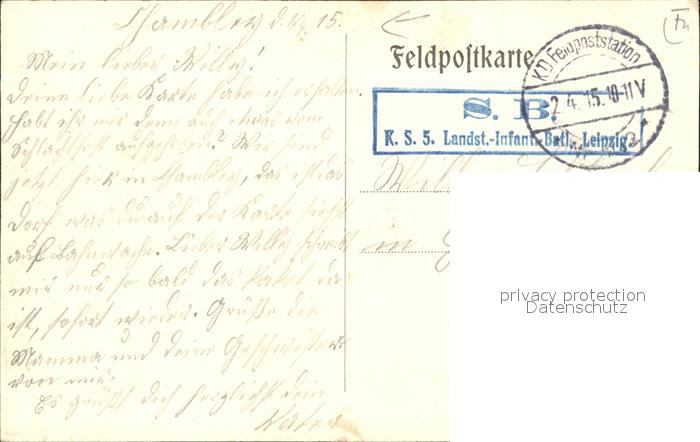 Chambley d. 1/4 15.
Mein lieber Willy!
Deine liebe Karte habe ich erhalten
habt ihr mir denn auch etwas vom
Schlachtfest aufgehoben? Wir
jetzt hier in Chambley, das ist das
Dorf was du auf der Karte siehst
auf Bahnwache. Lieber Willy schreibt
mir nur so bald das Paket da
ist, sofort wieder. Grüße die
Mamma und deine Geschwister
von mir.
Es grüßt dich herzlichst dein
Vater
Feldpostkarte
S. B.
K. S. 5. Landst.-Infant.-Batl. Leipzig
K.D. Feldpoststation
2.4.15.10-11V
Willy
in
privacy protection
Datenschutz